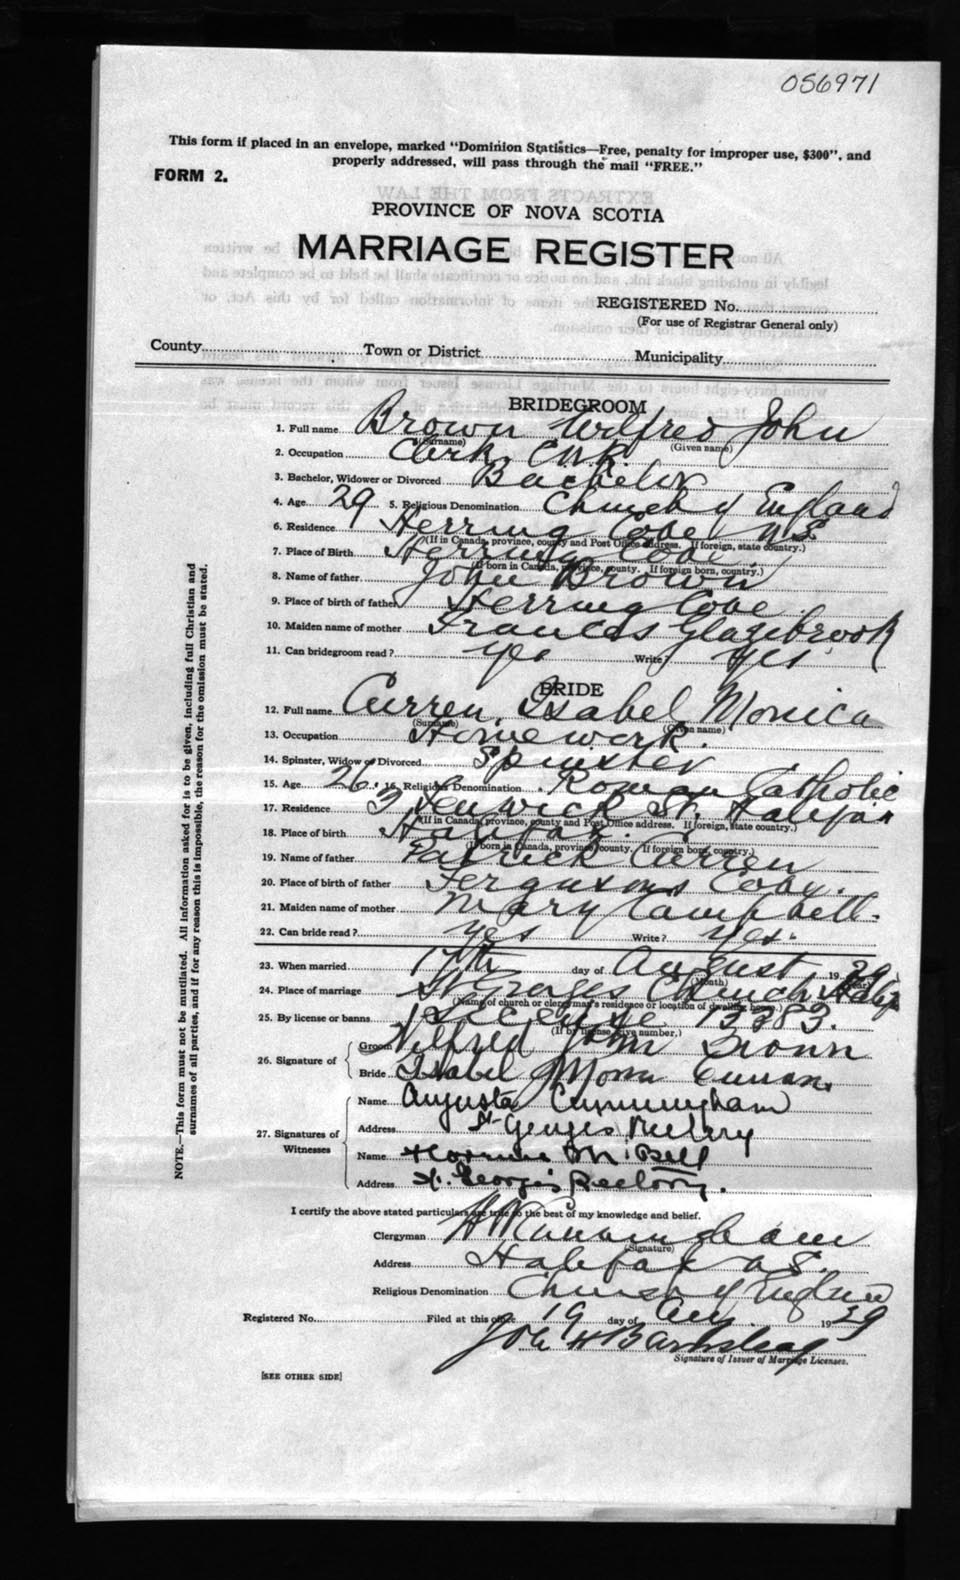 056971
This form if placed in an envelope, marked "Dominion Statistics—Free, penalty for improper use, $300", and
properly addressed, will pass through the mail "FREE."
FORM 2.
PROVINCE OF NOVA SCOTIA
MARRIAGE REGISTER
REGISTERED No.
(For use of Registrar General only)
County Town or District Municipality
BRIDEGROOM
1. Full name Brown Wilfred John
(Surname) (Given name)
2. Occupation Clerk C.N.R.
3. Bachelor, Widower or Divorced Bachelor
4. Age 29 5. Religious Denomination Church of England
6. Residence Herring Cove N.S.
(If in Canada, province, county and Post Office address. If foreign, state country.)
7. Place of Birth Herring Cove
(If born in Canada, province, county. If foreign born, country.)
8. Name of father John Brown
9. Place of birth of father Herring Cove
10. Maiden name of mother Frances Glazebrook
11. Can bridegroom read? yes Write? yes
BRIDE
12. Full name Curren, Isabel Monica
(Surname) (Given name)
13. Occupation Homework.
14. Spinster, Widow or Divorced Spinster
15. Age 26. 16. Religious Denomination Roman Catholic
17. Residence 3 Fenwick St. Halifax
(If in Canada, province, county and Post Office address. If foreign, state country.)
18. Place of birth Halifax.
(If born in Canada, province, county. If foreign born, country.)
19. Name of father Patrick Curren
20. Place of birth of father Fergusons Cove.
21. Maiden name of mother Mary Campbell.
22. Can bride read? yes Write? yes.
23. When married 17th day of August 1929
(Month) (Year)
24. Place of marriage St Georges Church Halifax
(Name of church or clergyman's residence or location of dwelling house.)
25. By license or banns License 13383.
(If by license, give number.)
26. Signature of
Groom Wilfred John Brown
Bride Isabel Mona Curran
27. Signatures of Witnesses
Name Augusta Cunningham
Address St Georges Rectory
Name M. Bell
Address St. George's Rectory.
I certify the above stated particulars are true to the best of my knowledge and belief.
Clergyman Cunningham
(Signature)
Address Halifax N.S.
Religious Denomination Church of England
Registered No. Filed at this office 19 day of Aug. 1929
H Barnstead
Signature of Issuer of Marriage Licenses.
[SEE OTHER SIDE]
NOTE.—This form must not be mutilated. All information asked for is to be given, including full Christian and
surnames of all parties, and if for any reason this is impossible, the reason for the omission must be stated.